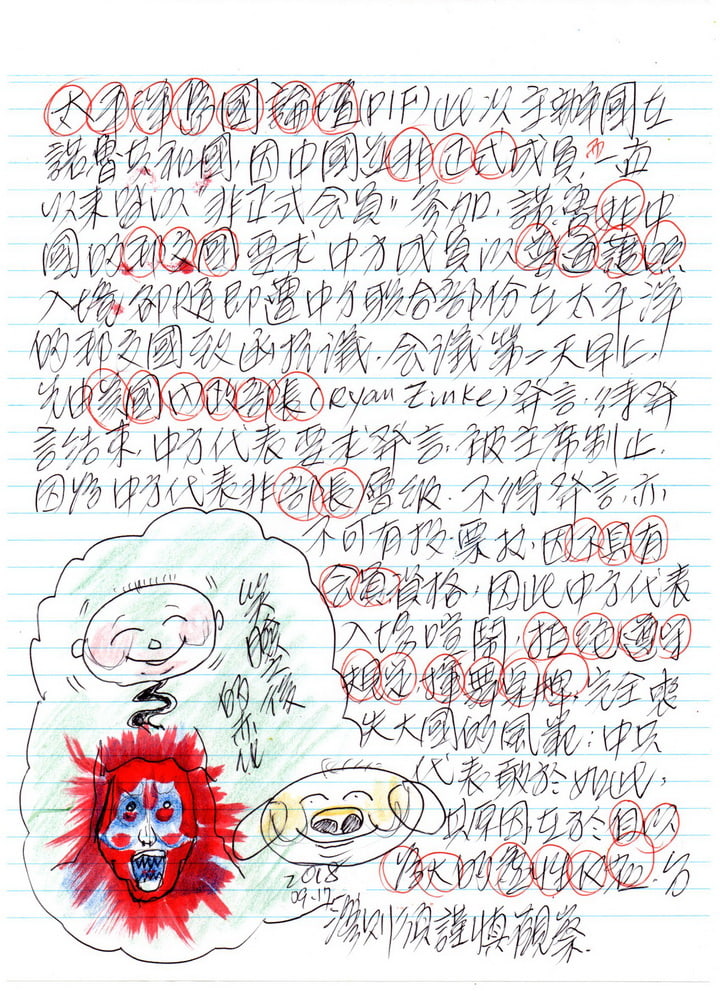 太平洋島國論壇(PIF)此次主辦國在
諾魯共和國,因中國並非正式成員,一直
以來皆以"非正式會員"參加,諾魯非中
國的邦交國要求中方成員以普通護照
入場,卻隨即遭中方聯合部份在太平洋
的邦交國致函抗議,會議第二天早上,
先由美國內政部長(Ryan Zinke)發言,待發
言結束,中方代表要求發言,被主席制止,
因為中方代表非部長層級,不得發言,亦
不可有投票权,因不具有
會員資格;因此中方代表
入場喧鬧,拒絕遵守
規定,
完全喪
失大國的風範;中共
代表敢於如此,
其原因在於自以
為大的
台
灣則須謹慎觀察.
笑臉之後
的惡
2018
09.17